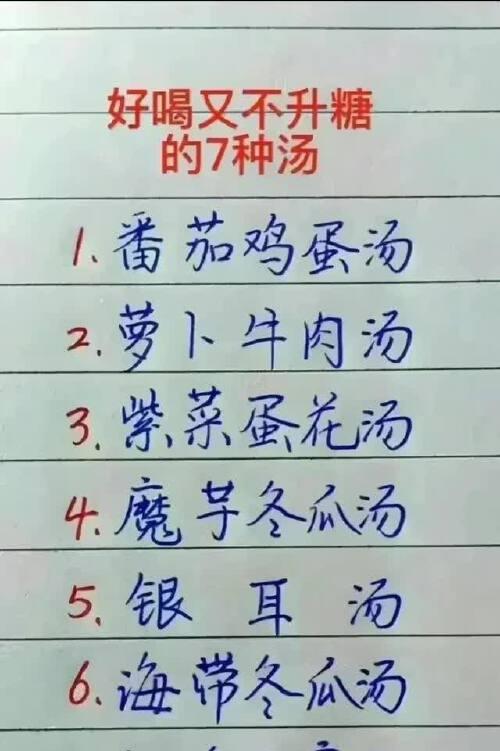 好喝又不升糖
的7种汤
1. 番茄鸡蛋汤
2. 萝卜牛肉汤
3. 紫菜蛋花汤
4. 魔芋冬瓜汤
5. 银耳汤
6. 海带冬瓜汤